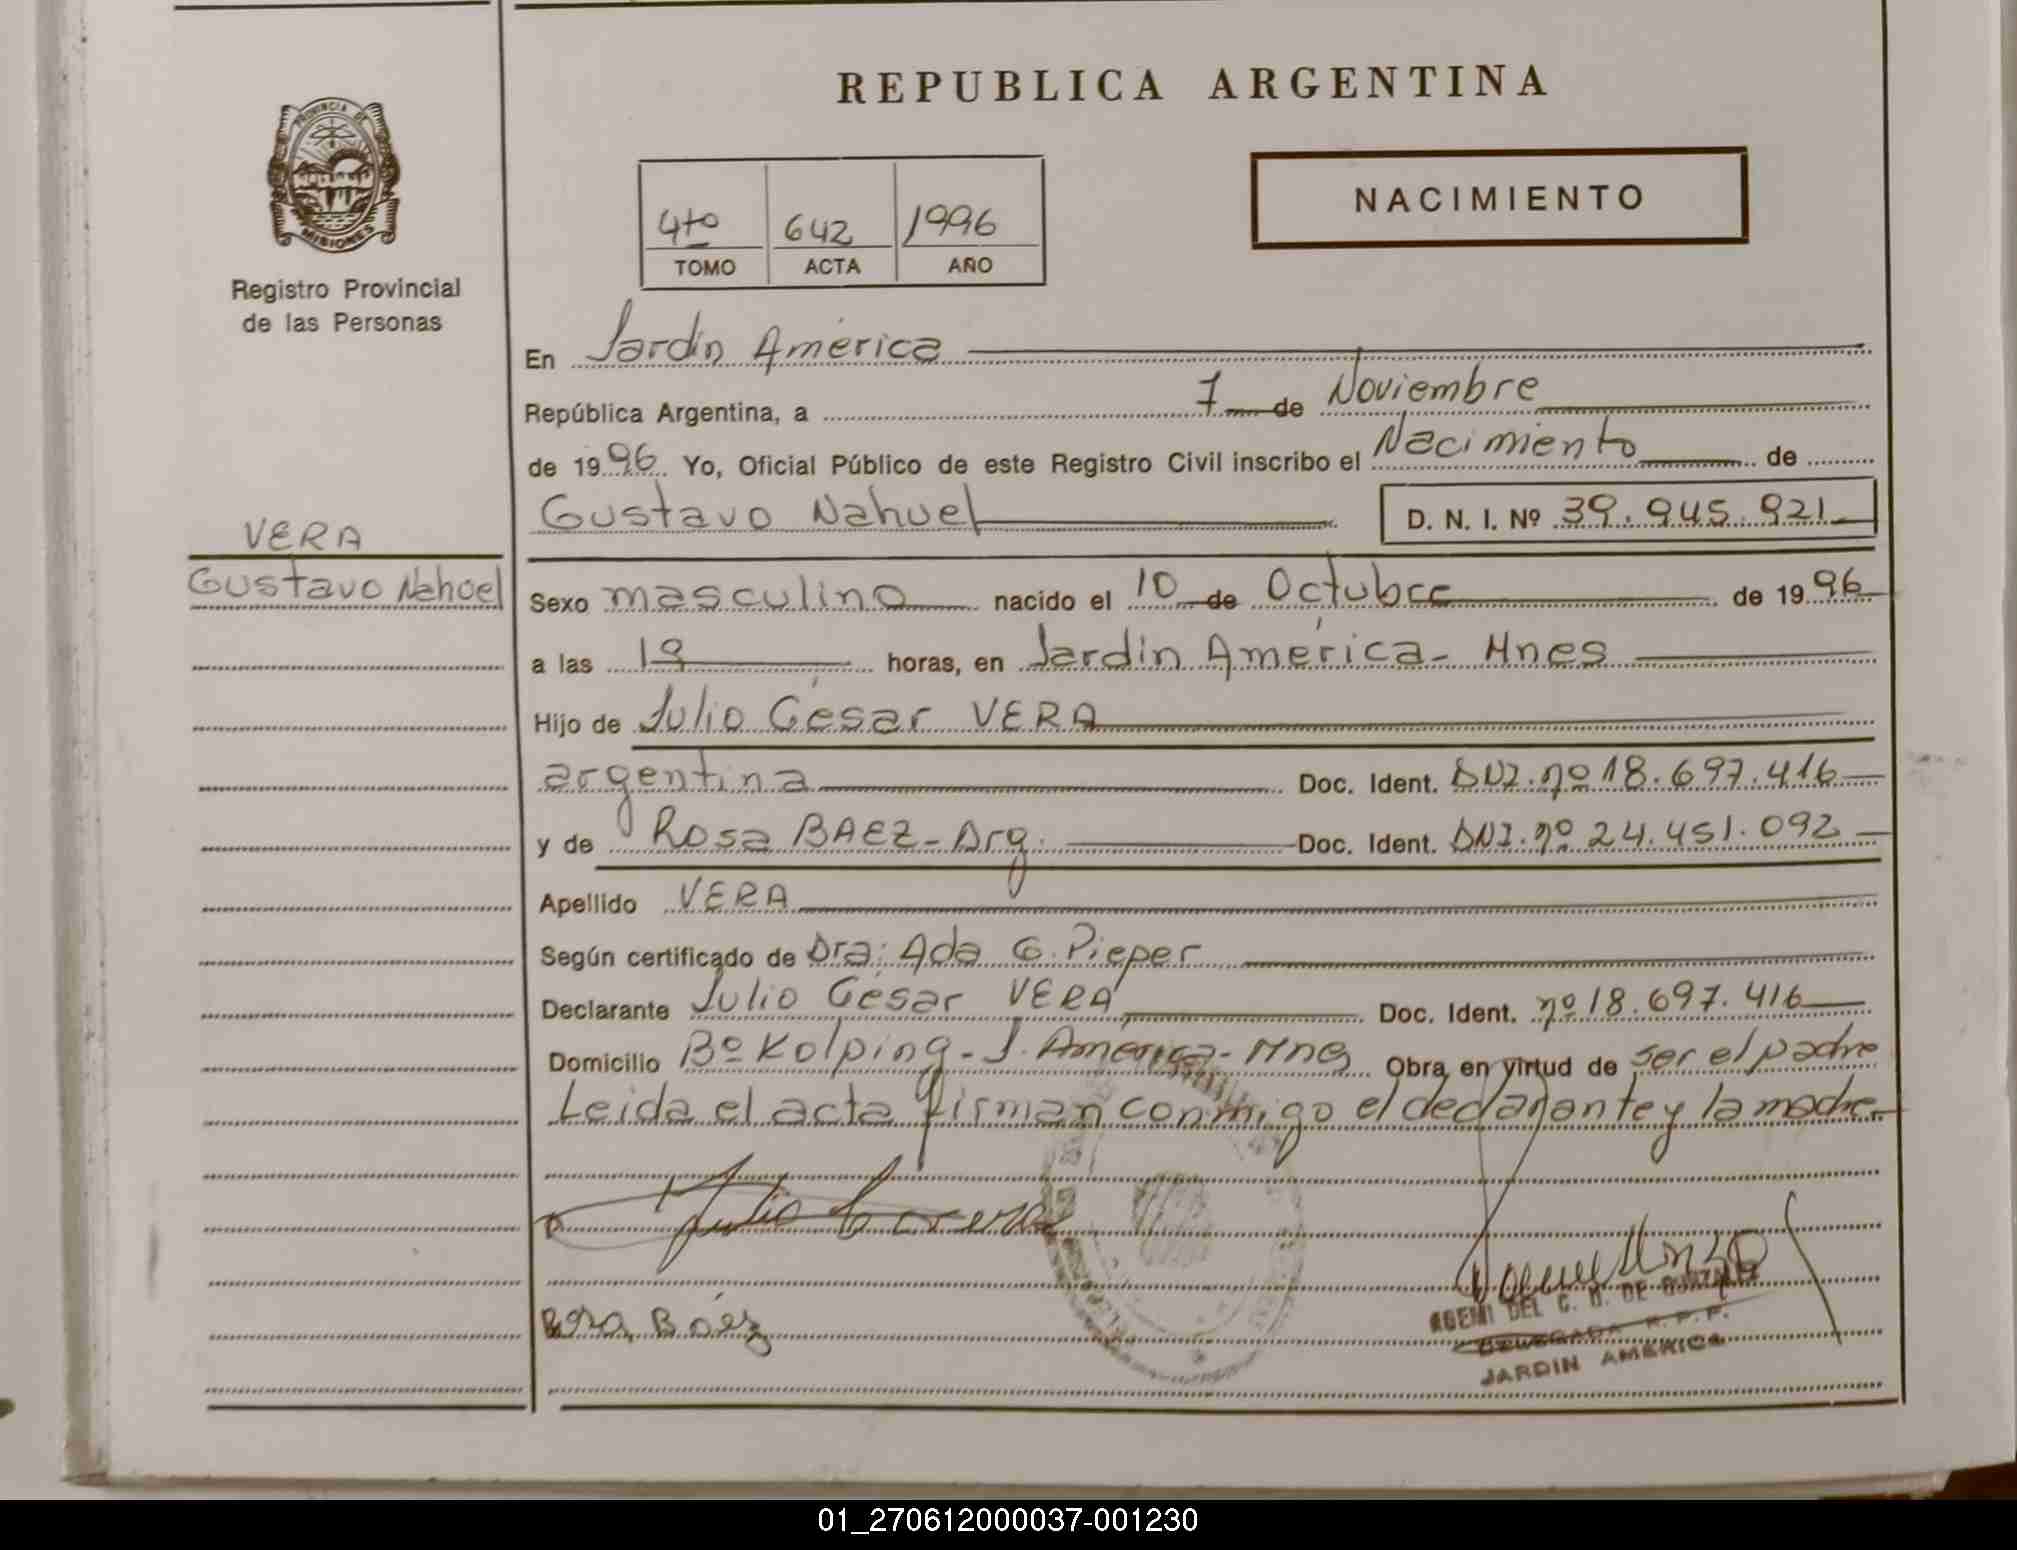 REPUBLICA ARGENTINA
PROVINCIA DE
MISIONES
Registro Provincial
de las Personas
4to 642 1996
TOMO ACTA AÑO
NACIMIENTO
En Jardín América
República Argentina, a 7 de Noviembre
de 1996 Yo, Oficial Público de este Registro Civil inscribo el Nacimiento de
Gustavo Nahuel D. N. I. Nº 39.945.921
VERA
Gustavo Nahuel
Sexo masculino nacido el 10 de Octubre de 1996
a las 19 horas, en Jardín América - Mnes
Hijo de Julio César VERA
argentina Doc. Ident. DNI. nº 18.697.416
y de Rosa BAEZ - Arg. Doc. Ident. DNI. nº 24.451.092
Apellido VERA
Según certificado de Dra: Ada G. Pieper
Declarante Julio César VERA Doc. Ident. nº 18.697.416
Domicilio Bº Kolping - J. América - Mnes Obra en virtud de ser el padre
Leida el acta firman conmigo el declarante y la madre
Julio C. Vera
Rosa Báez
DEL C. D. DE GONZALEZ
DELEGADA R.P.P.
JARDIN AMERICA
01_270612000037-001230